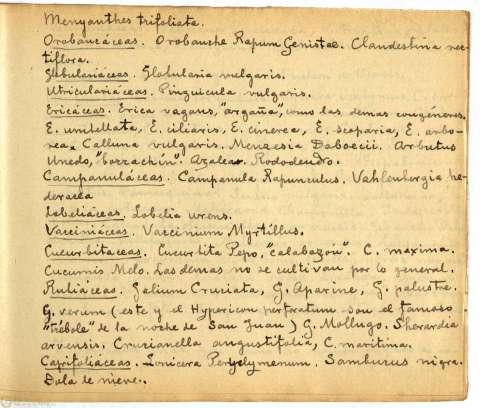 Menyanthes trifoliata.
Orobancáceas. Orobanche Rapum Genistae. Clandestina rec-
tiflora.
Globulariáceas. Globularia vulgaris.
Utriculariáceas. Pinguicula vulgaris.
Ericáceas. Erica vagans, "argaña", como las demas congéneres.
E. umbellata, E. ciliaris, E. cinerea, E. scoparia, E. arbo-
rea. Calluna vulgaris. Menziesia Daboecii. Arbutus
Unedo, "borrachín". Azalea. Rododendro.
Campanuláceas. Campanula Rapunculus. Vahlenbergia he-
deracea
Lobeliáceas. Lobelia urens.
Vacciniáceas. Vaccinium Myrtillus.
Cucurbitaceas. Cucurbita Pepo, "calabazón". C. maxima.
Cucumis Melo. Las demas no se cultivan por lo general.
Rubiáceas. Galium Cruciata, G. Aparine, G. palustre.
G. verum (este y el Hypericum perforatum son el famoso
"trébole" de la noche de San Juan) G. Mollugo. Sherardia
arvensis. Crucianella angustifolia, C. maritima.
Caprifoliáceas. Lonicera Periclymenum. Sambucus nigra.
Bola de nieve.